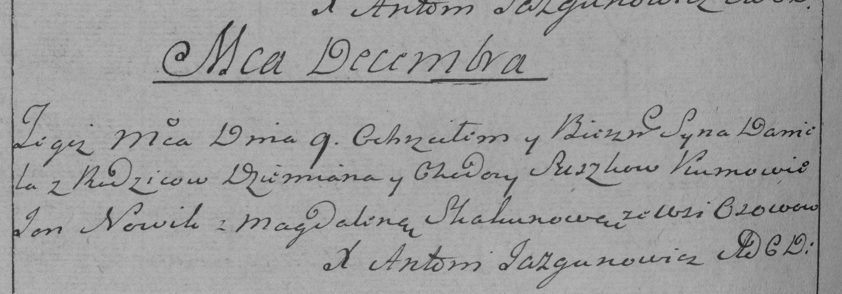 X Antoni Jazgunowicz
Mca Decembra
Tegoż Mca Dnia 9. Ochrzciłem y Bierzm Syna Danie
la z Rodzicow Dziemiana y Chodory Suszkow Kumowie
Jan Nowik z Magdaleną Skakunową ze wsi
X Antoni Jazgunowicz